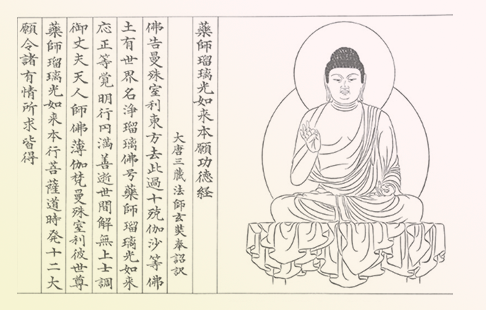 藥師瑠璃光如来本願功徳経
大唐三藏法師玄奘奉詔訳
佛告曼殊室利東方去此過十殑伽沙等佛
土有世界名浄瑠璃佛号藥師瑠璃光如来
応正等覚明行円満善逝世間解無上士調
御丈夫天人師佛薄伽梵曼殊室利彼世尊
藥師瑠璃光如来本行菩薩道時発十二大
願令諸有情所求皆得